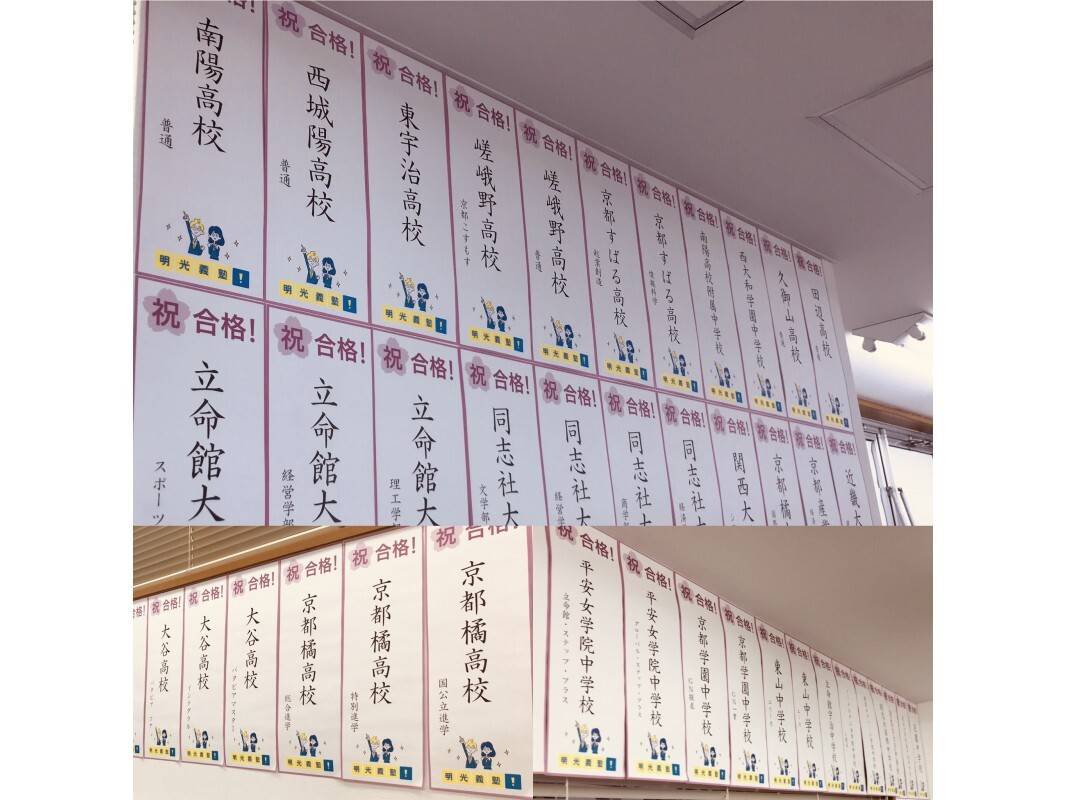 合格!
南陽高校
普通
明光義塾!
祝合格!
西城陽高校
普通
明光義塾!
祝合格!
東宇治高校
明光義塾!
祝合格!
嵯峨野高校
京都こすもす
明光義塾!
祝合格!
嵯峨野高校
普通
明光義塾!
祝合格!
京都すばる高校
起業創造
明光義塾!
祝合格!
京都すばる高校
情報科学
明光義塾!
祝合格!
南陽高校附属中学校
明光義塾!
祝合格!
西大和学園中学校
明光義塾!
祝合格!
久御山高校
普通
明光義塾!
祝合格!
田辺高校
明光義塾!
祝合格!
立命館大
スポーツ
祝合格!
立命館大
経営学部
祝合格!
立命館大
理工学部
祝合格!
同志社大
文学部
祝合格!
同志社大
経営学
祝合格!
同志社大
商学
祝合格!
同志社大
経済
祝合格!
関西大
祝合格!
京都橘
祝合格!
京都産
祝合格!
近畿大
合格!
祝合格!
大谷高校
明光義塾!
祝合格!
大谷高校
明光義塾!
祝合格!
大谷高校
バタビアマスター
明光義塾!
祝合格!
京都橘高校
総合進学
明光義塾!
祝合格!
京都橘高校
特別進学
明光義塾!
祝合格!
京都橘高校
国公立進学
明光義塾!
祝合格!
平安女学院中学校
立命館・ステップ・プラス
明光義塾!
祝合格!
平安女学院中学校
グローバル・ステップ・プラス
明光義塾!
祝合格!
京都学園中学校
明光義塾!
祝合格!
京都学園中学校
明光義塾!
祝合格!
東山中学校
祝合格!
東山中学校
祝合格!
立命館宇治中学校